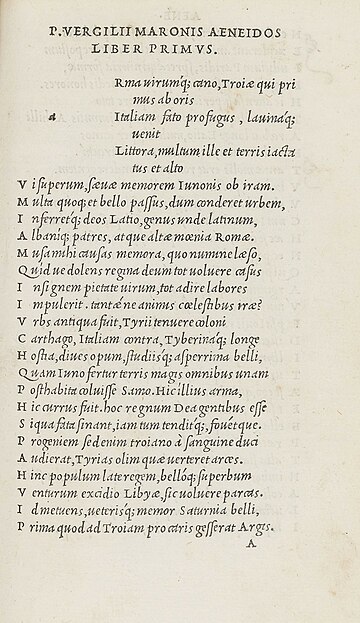 P. VERGILII MARONIS AENEIDOS
LIBER PRIMVS.
Rma uirumq; cano, Troiæ qui pri
mus ab oris
a Italiam fato profugus, lauinaq;
uenit
Littora, multum ille et terris iacta
tus et alto
V i superum, sæuæ memorem Iunonis ob iram.
M ulta quoq; et bello passus, dum conderet urbem,
I nferretq; deos Latio, genus unde latinum,
A lbaniq; patres, atque altæ mœnia Romæ.
M usa mihi causas memora, quo numine læso,
Q uid ue dolens regina deum tot uoluere casus
I nsignem pietate uirum, tot adire labores
I mpulerit. tantæ ne animus cœlestibus iræ?
V rbs antiqua fuit, Tyrii tenuere coloni
C arthago, Italiam contra, Tyberinaq; longe
H ostia, diues opum, studiisq; asperrima belli,
Q uam Iuno fertur terris magis omnibus unam
P osthabita coluisse Samo. Hic illius arma,
H ic currus fuit. hoc regnum Dea gentibus esse
S i qua fata sinant, iam tum tenditq;, fouetque.
P rogeniem sed enim troiano à sanguine duci
A udierat, Tyrias olim quæ uerteret arces.
H inc populum late regem, belloq; superbum
V enturum excidio Libyæ, sic uoluere parcas.
I d metuens, ueterisq; memor Saturnia belli,
P rima quod ad Troiam pro caris gesserat Argis.
A